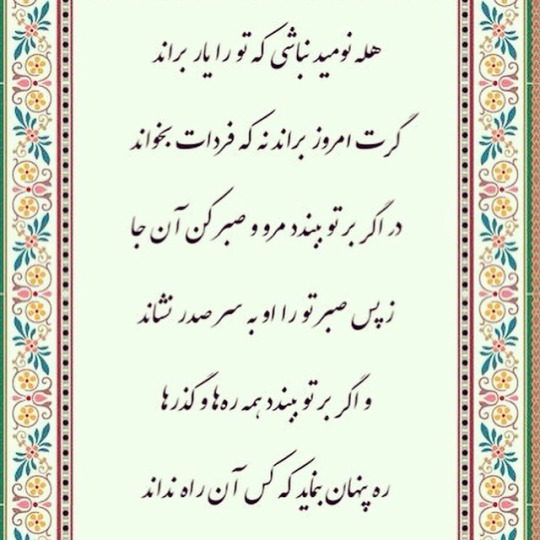 هله نومید نباشی که تو را یار براند
گرت امروز براند نه که فردات بخواند
در اگر بر تو ببندد مرو و صبر کن آن جا
ز پس صبر تو را او به سر صدر نشاند
و اگر بر تو ببندد همه ره‌ها و گذرها
ره پنهان بنماید که کس آن راه نداند